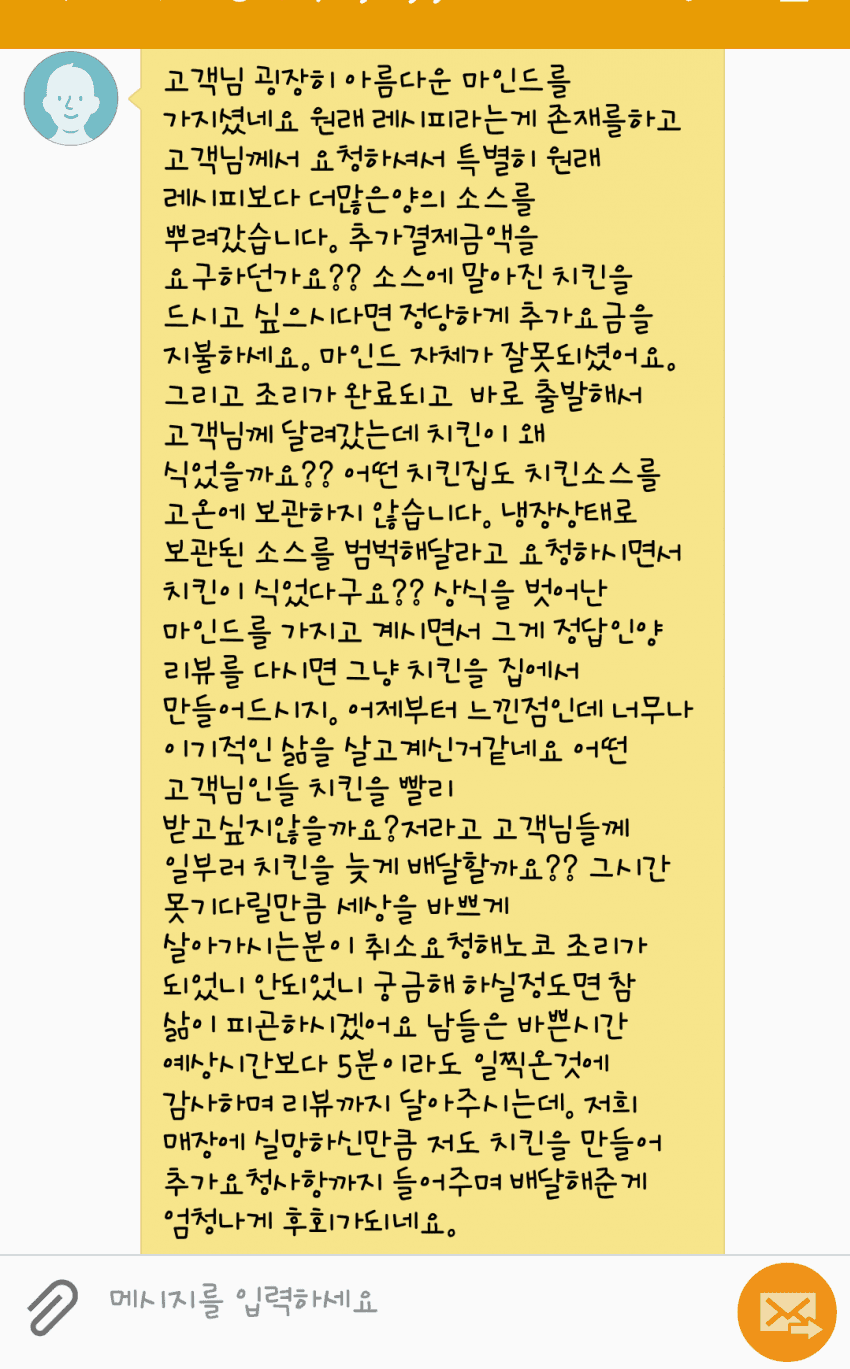 고객님 굉장히 아름다운 마인드를
가지셨네요 원래 레시피라는게 존재를하고
고객님께서 요청하셔서 특별히 원래
레시피보다 더많은양의 소스를
뿌려갔습니다. 추가결제금액을
요구하던가요?? 소스에 말아진 치킨을
드시고 싶으시다면 정당하게 추가요금을
지불하세요. 마인드 자체가 잘못되셨어요.
그리고 조리가 완료되고 바로 출발해서
고객님께 달려갔는데 치킨이 왜
식었을까요?? 어떤 치킨집도 치킨소스를
고온에 보관하지 않습니다. 냉장상태로
보관된 소스를 범벅해달라고 요청하시면서
치킨이 식었다구요?? 상식을 벗어난
마인드를 가지고 계시면서 그게 정답인양
리뷰를 다시면 그냥 치킨을 집에서
만들어드시지. 어제부터 느낀점인데 너무나
이기적인 삶을 살고계신거같네요 어떤
고객님인들 치킨을 빨리
받고싶지않을까요?저라고 고객님들께
일부러 치킨을 늦게 배달할까요?? 그시간
못기다릴만큼 세상을 바쁘게
살아가시는분이 취소요청해노코 조리가
되었니 안되었니 궁금해 하실정도면 참
삶이 피곤하시겠어요 남들은 바쁜시간
예상시간보다 5분이라도 일찍온것에
감사하며 리뷰까지 달아주시는데. 저희
매장에 실망하신만큼 저도 치킨을 만들어
추가요청사항까지 들어주며 배달해준게
엄청나게 후회가되네요.
메시지를 입력하세요